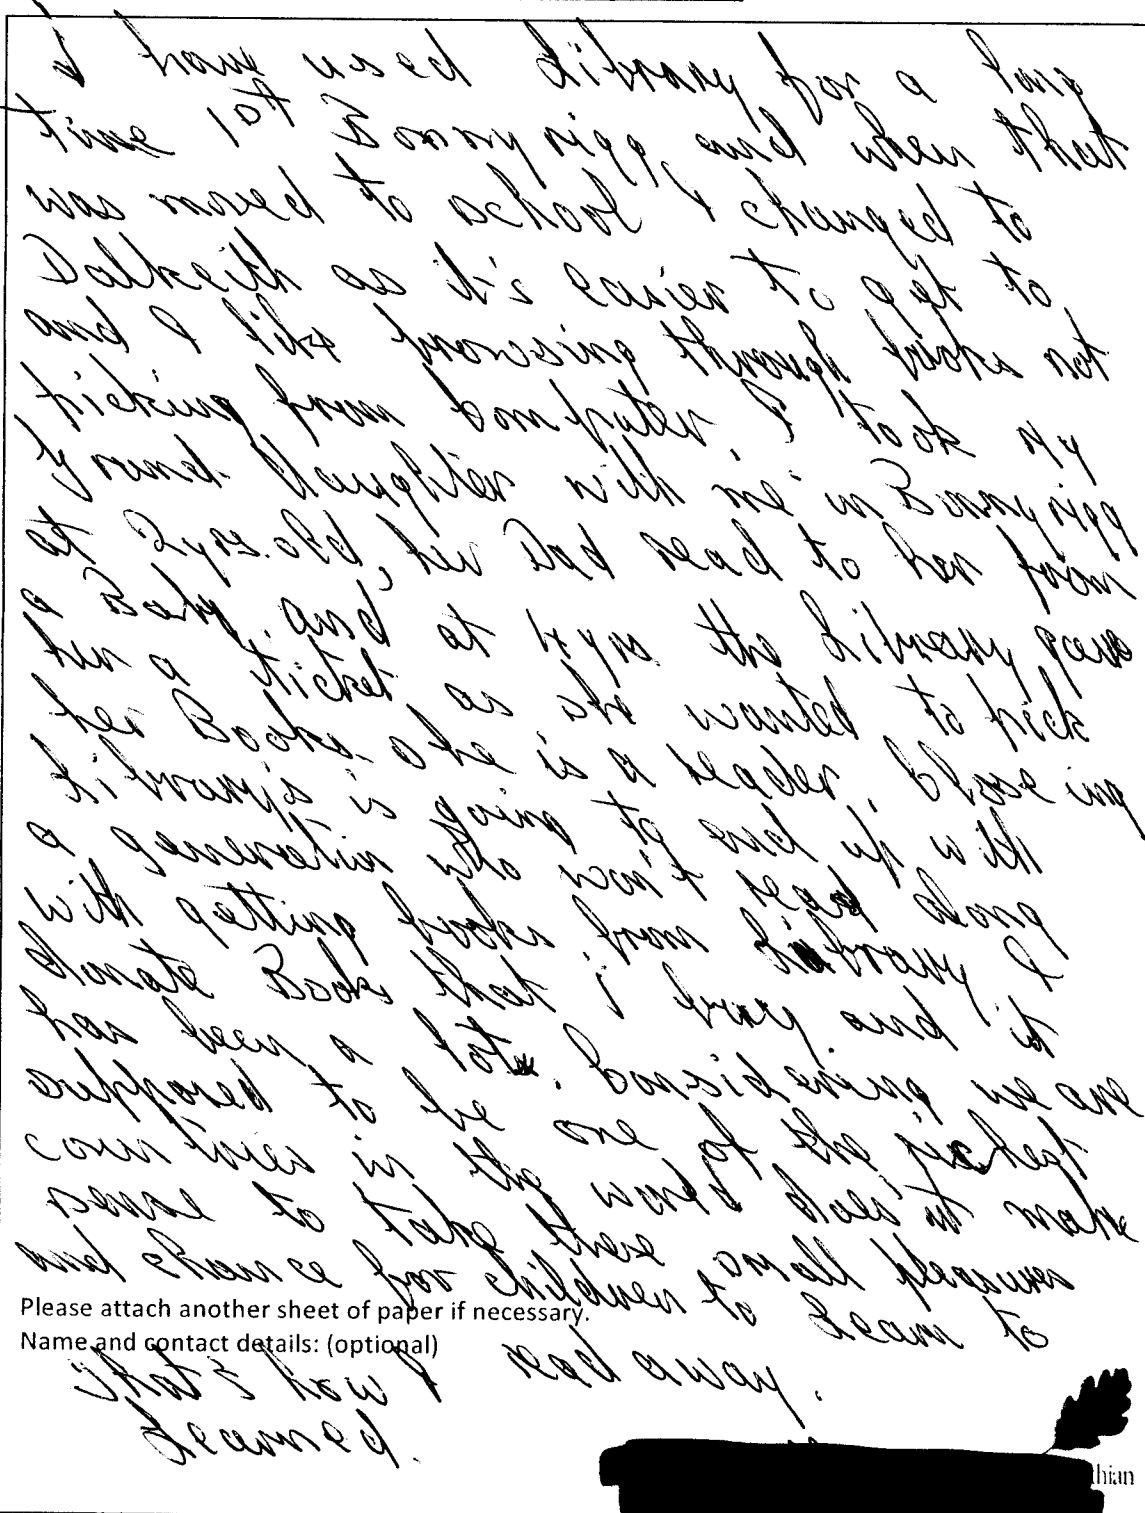 I have used Library for a long
time 1st Bonnyrigg and when that
was moved to school I changed to
Dalkeith as it's easier to get to
and I like browsing through books not
picking from computer, I took my
Grand-daughter with me in Bonnyrigg
at 2yrs.old, her Dad read to her from
a Baby. and at 4yrs the Library gave
her a ticket as she wanted to pick
her Books. she is a reader. Closeing
Library's is going to end up with
a generation who won't read along
with getting books from Library I
donate Books that i buy and it
has been a lot. Considering we are
supposed to be one of the richest
countries in the world does it make
sense to take these small pleasures
and chance for children to Learn to
Please attach another sheet of paper if necessary.
Name and contact details: (optional)
read away.
That's how I
Learned.
hian